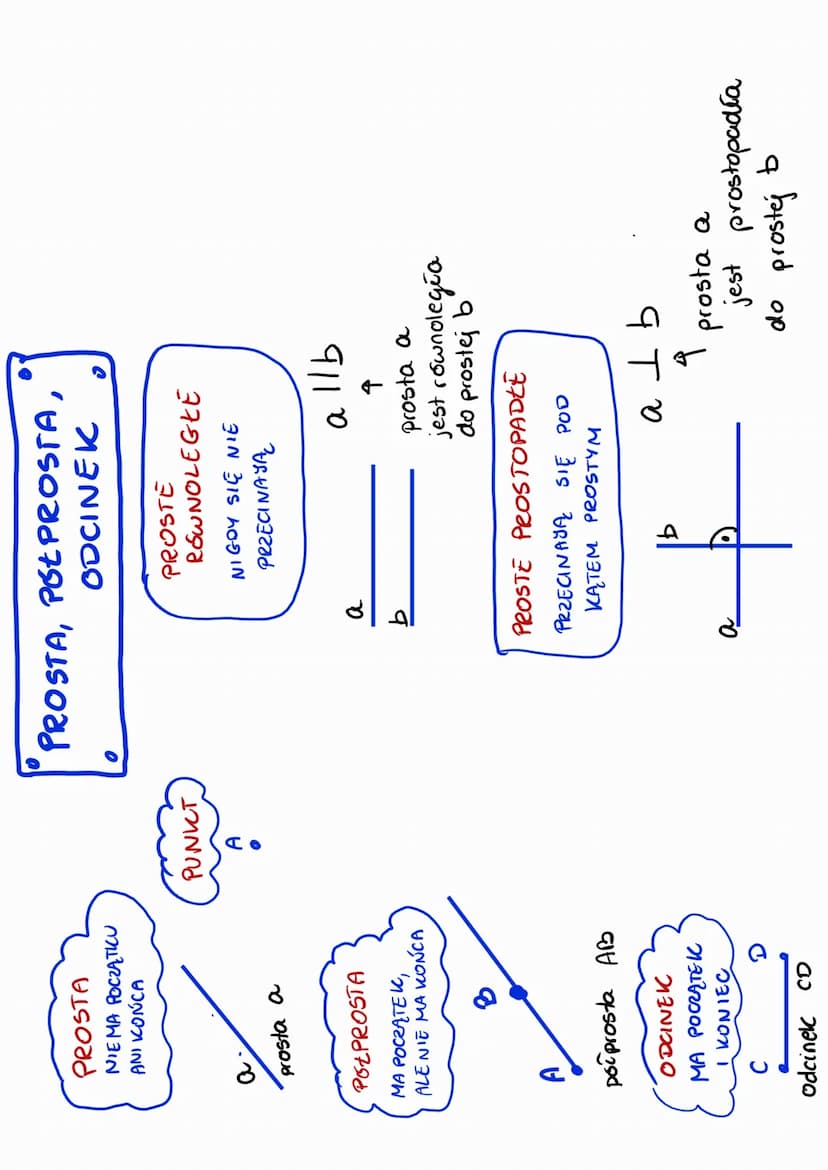 PROSTA, PÓŁPROSTA,
ODCINEK
PROSTA
NIE MA POCZĄTKU
ANI KOŃCA
a
prosta a
PUNKT
A
PÓŁPROSTA
MA POCZĄTEK,
ALE NIE MA KOŃCA
A
B
półprosta AB
ODCINEK
MA POCZĄTEK
I KONIEC
C
D
odcinek CD
PROSTE
RÓWNOLEGŁE
NIGDY SIĘ NIE
PRZECINAJĄ
a
b
a || b
↑
prosta a
jest równoległa
do prostej b
PROSTE PROSTOPADŁE
PRZECINAJĄ SIĘ POD
KĄTEM PROSTYM
b
a
a ⊥ b
↑
prosta a
jest prostopadła
do prostej b